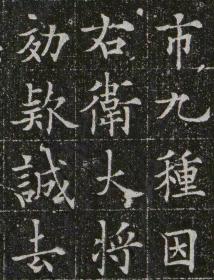 市九種因
右衛大将
効款誠去